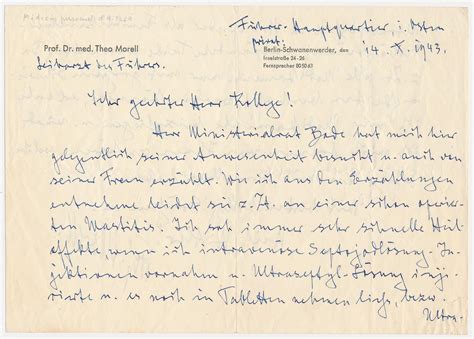 Führer-Hauptquartier, i. Osten
privat:
Prof. Dr. med. Theo Morell
Berlin-Schwanenwerder, den 14. X. 1943.
Inselstraße 24-26
Fernsprecher 80 50 63
Leibarzt des Führers.
Sehr geehrter Herr Kollege!
Herr Ministerialrat Bade hat mich hier
gelegentlich seiner Anwesenheit besucht u. auch von
seiner Frau erzählt. Wie ich aus den Erzählungen
entnehme leidet sie z. Zt. an einer schon operier-
ten Mastitis. Ich sah immer sehr schnelle Heil-
effekte, wenn ich intravenöse Septojodlösung-In-
jektionen vornahm u. Ultraseptyl-Lösung inji-
zierte u. es noch in Tabletten nehmen liess, bezw.
Ultra-